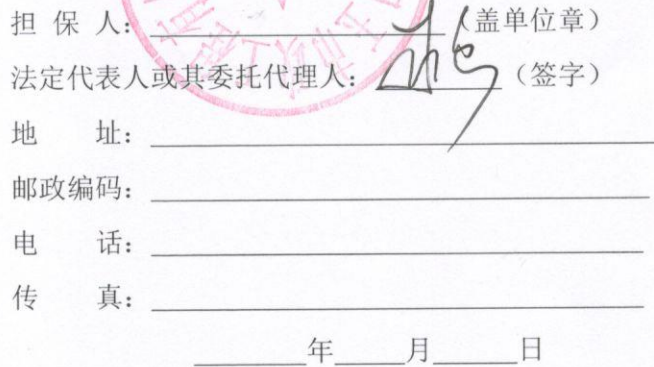 担 保 人：（盖单位章）
法定代表人或其委托代理人：（签字）
地 址：
邮政编码：
电 话：
传 真：
年 月 日